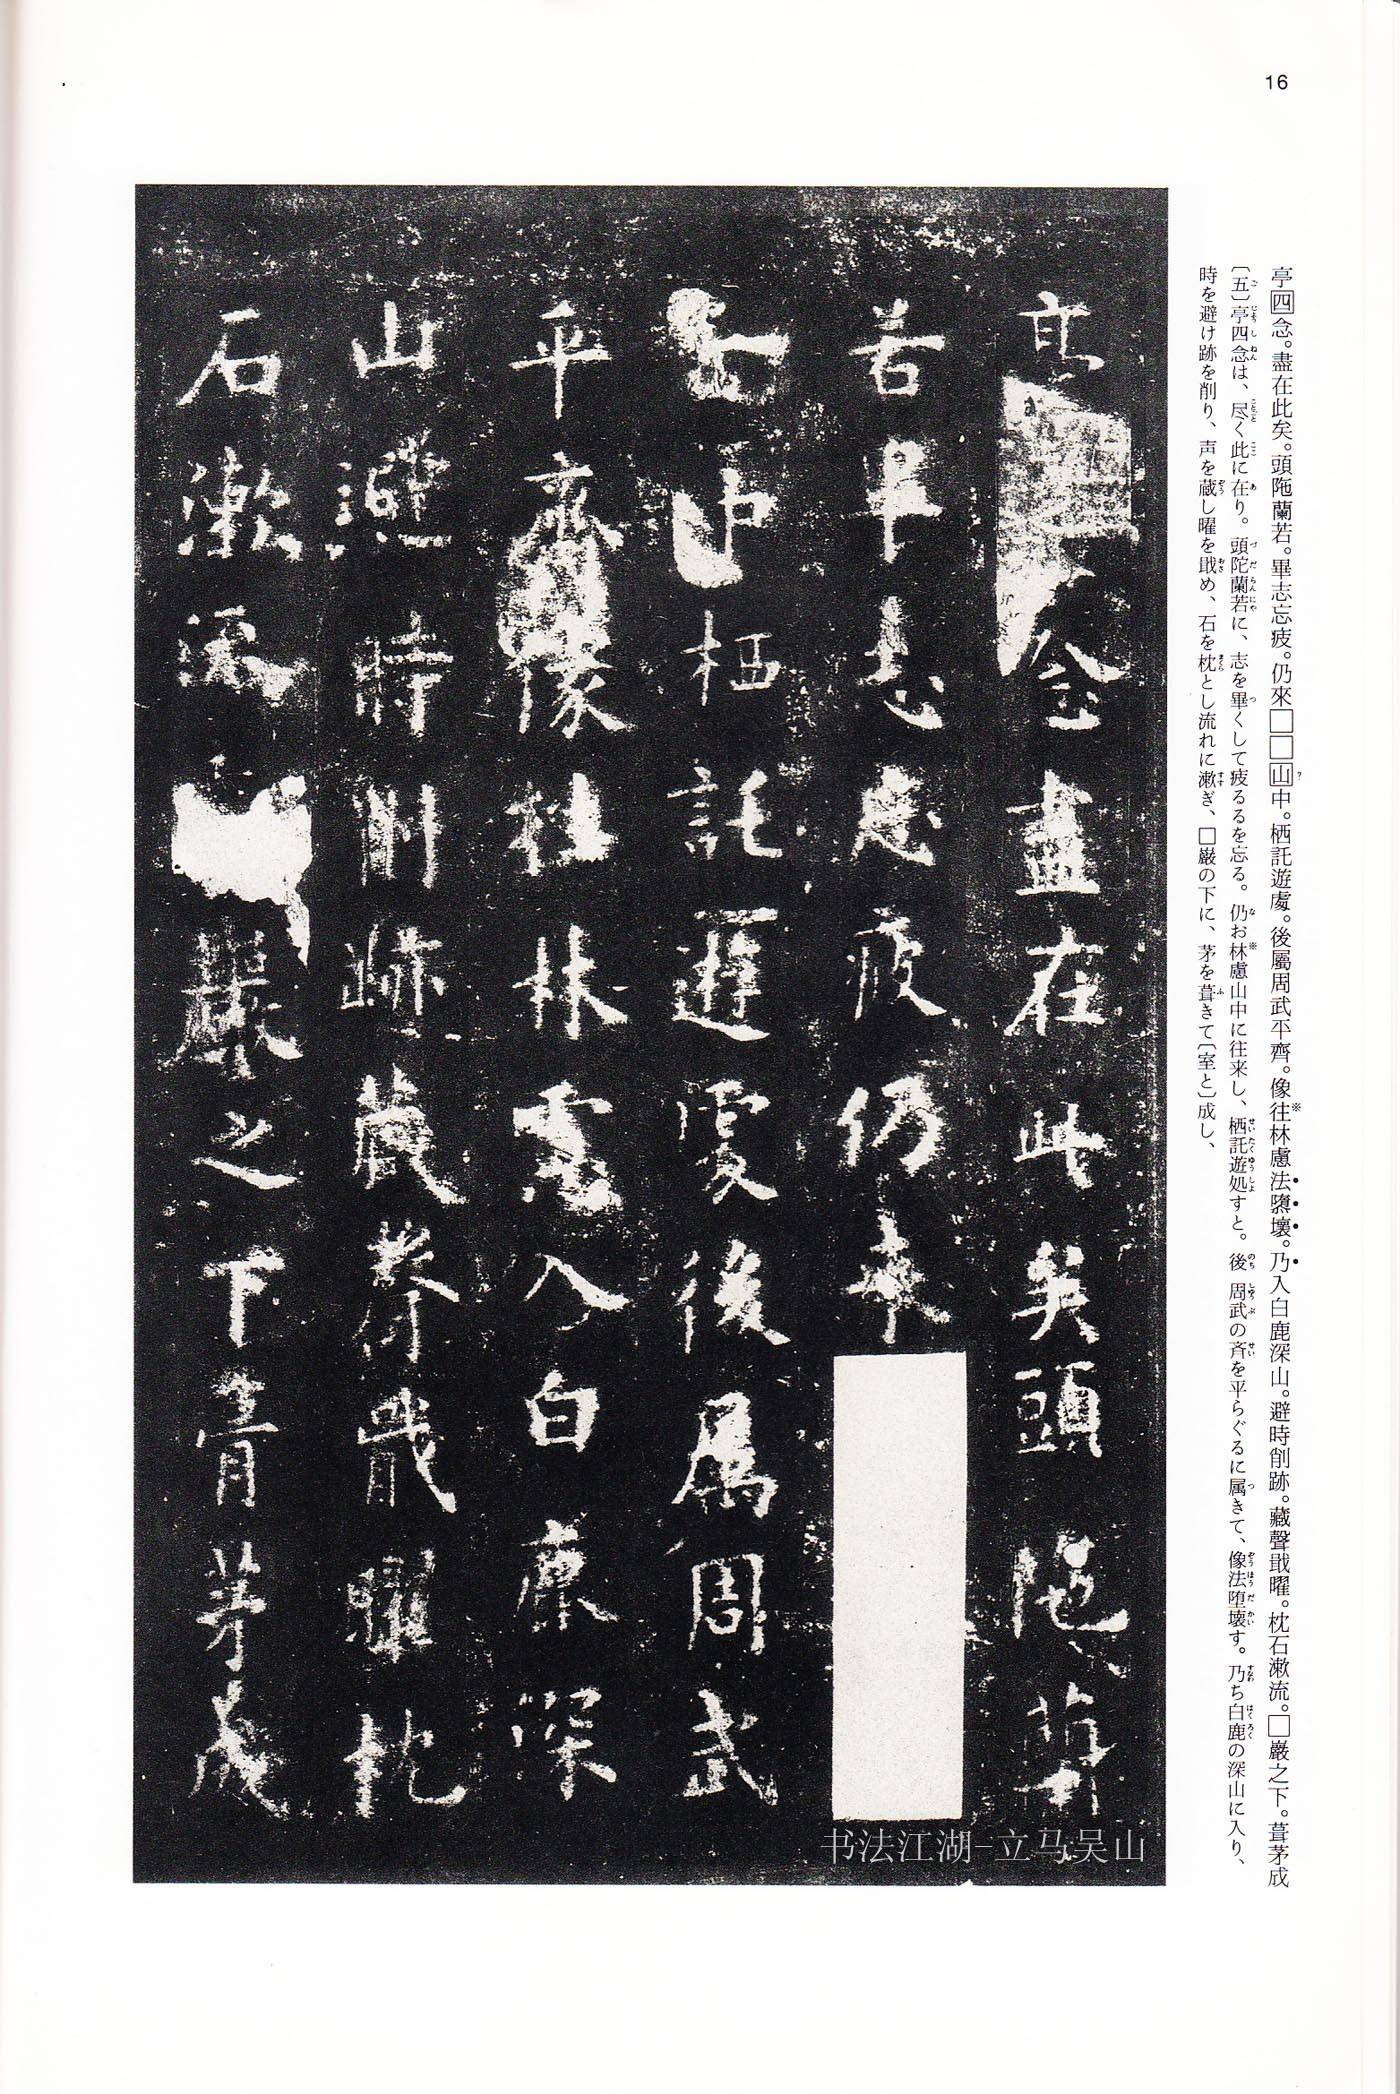 16
亭四念。盡在此矣。頭陁蘭若。畢志忘疲。仍來□□山中。栖託遊處。後屬周武平齊。像往林慮法墮壞。乃入白鹿深山。避時削跡。藏聲戢曜。枕石漱流。□巖之下。葺茅成
〔五〕亭四念は、尽く此に在り。頭陀蘭若に、志を畢くして疲るるを忘る。仍お林慮山中に往来し、栖託遊処すと。後周武の斉を平らぐるに属きて、像法堕壊す。乃ち白鹿の深山に入り、
時を避け跡を削り、声を蔵し曜を戢め、石を枕とし流れに漱ぎ、□巌の下に、茅を葺きて〔室と〕成し、
亭 念盡在此矣頭陁蘭
若畢志忘疲仍来
中栖託遊處後屬周武
平齊像往林慮入白鹿深
山避時削跡藏聲戢曜枕
石漱流 巖之下葺茅成
书法江湖-立马吴山